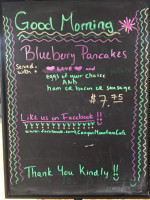 Good Morning
Blueberry Pancakes
Served with + LOVE and
eggs of your choice
AND
ham or bacon or sausage
$7.75
Like us on Facebook!!
www.facebook.com/
Thank You Kindly!!